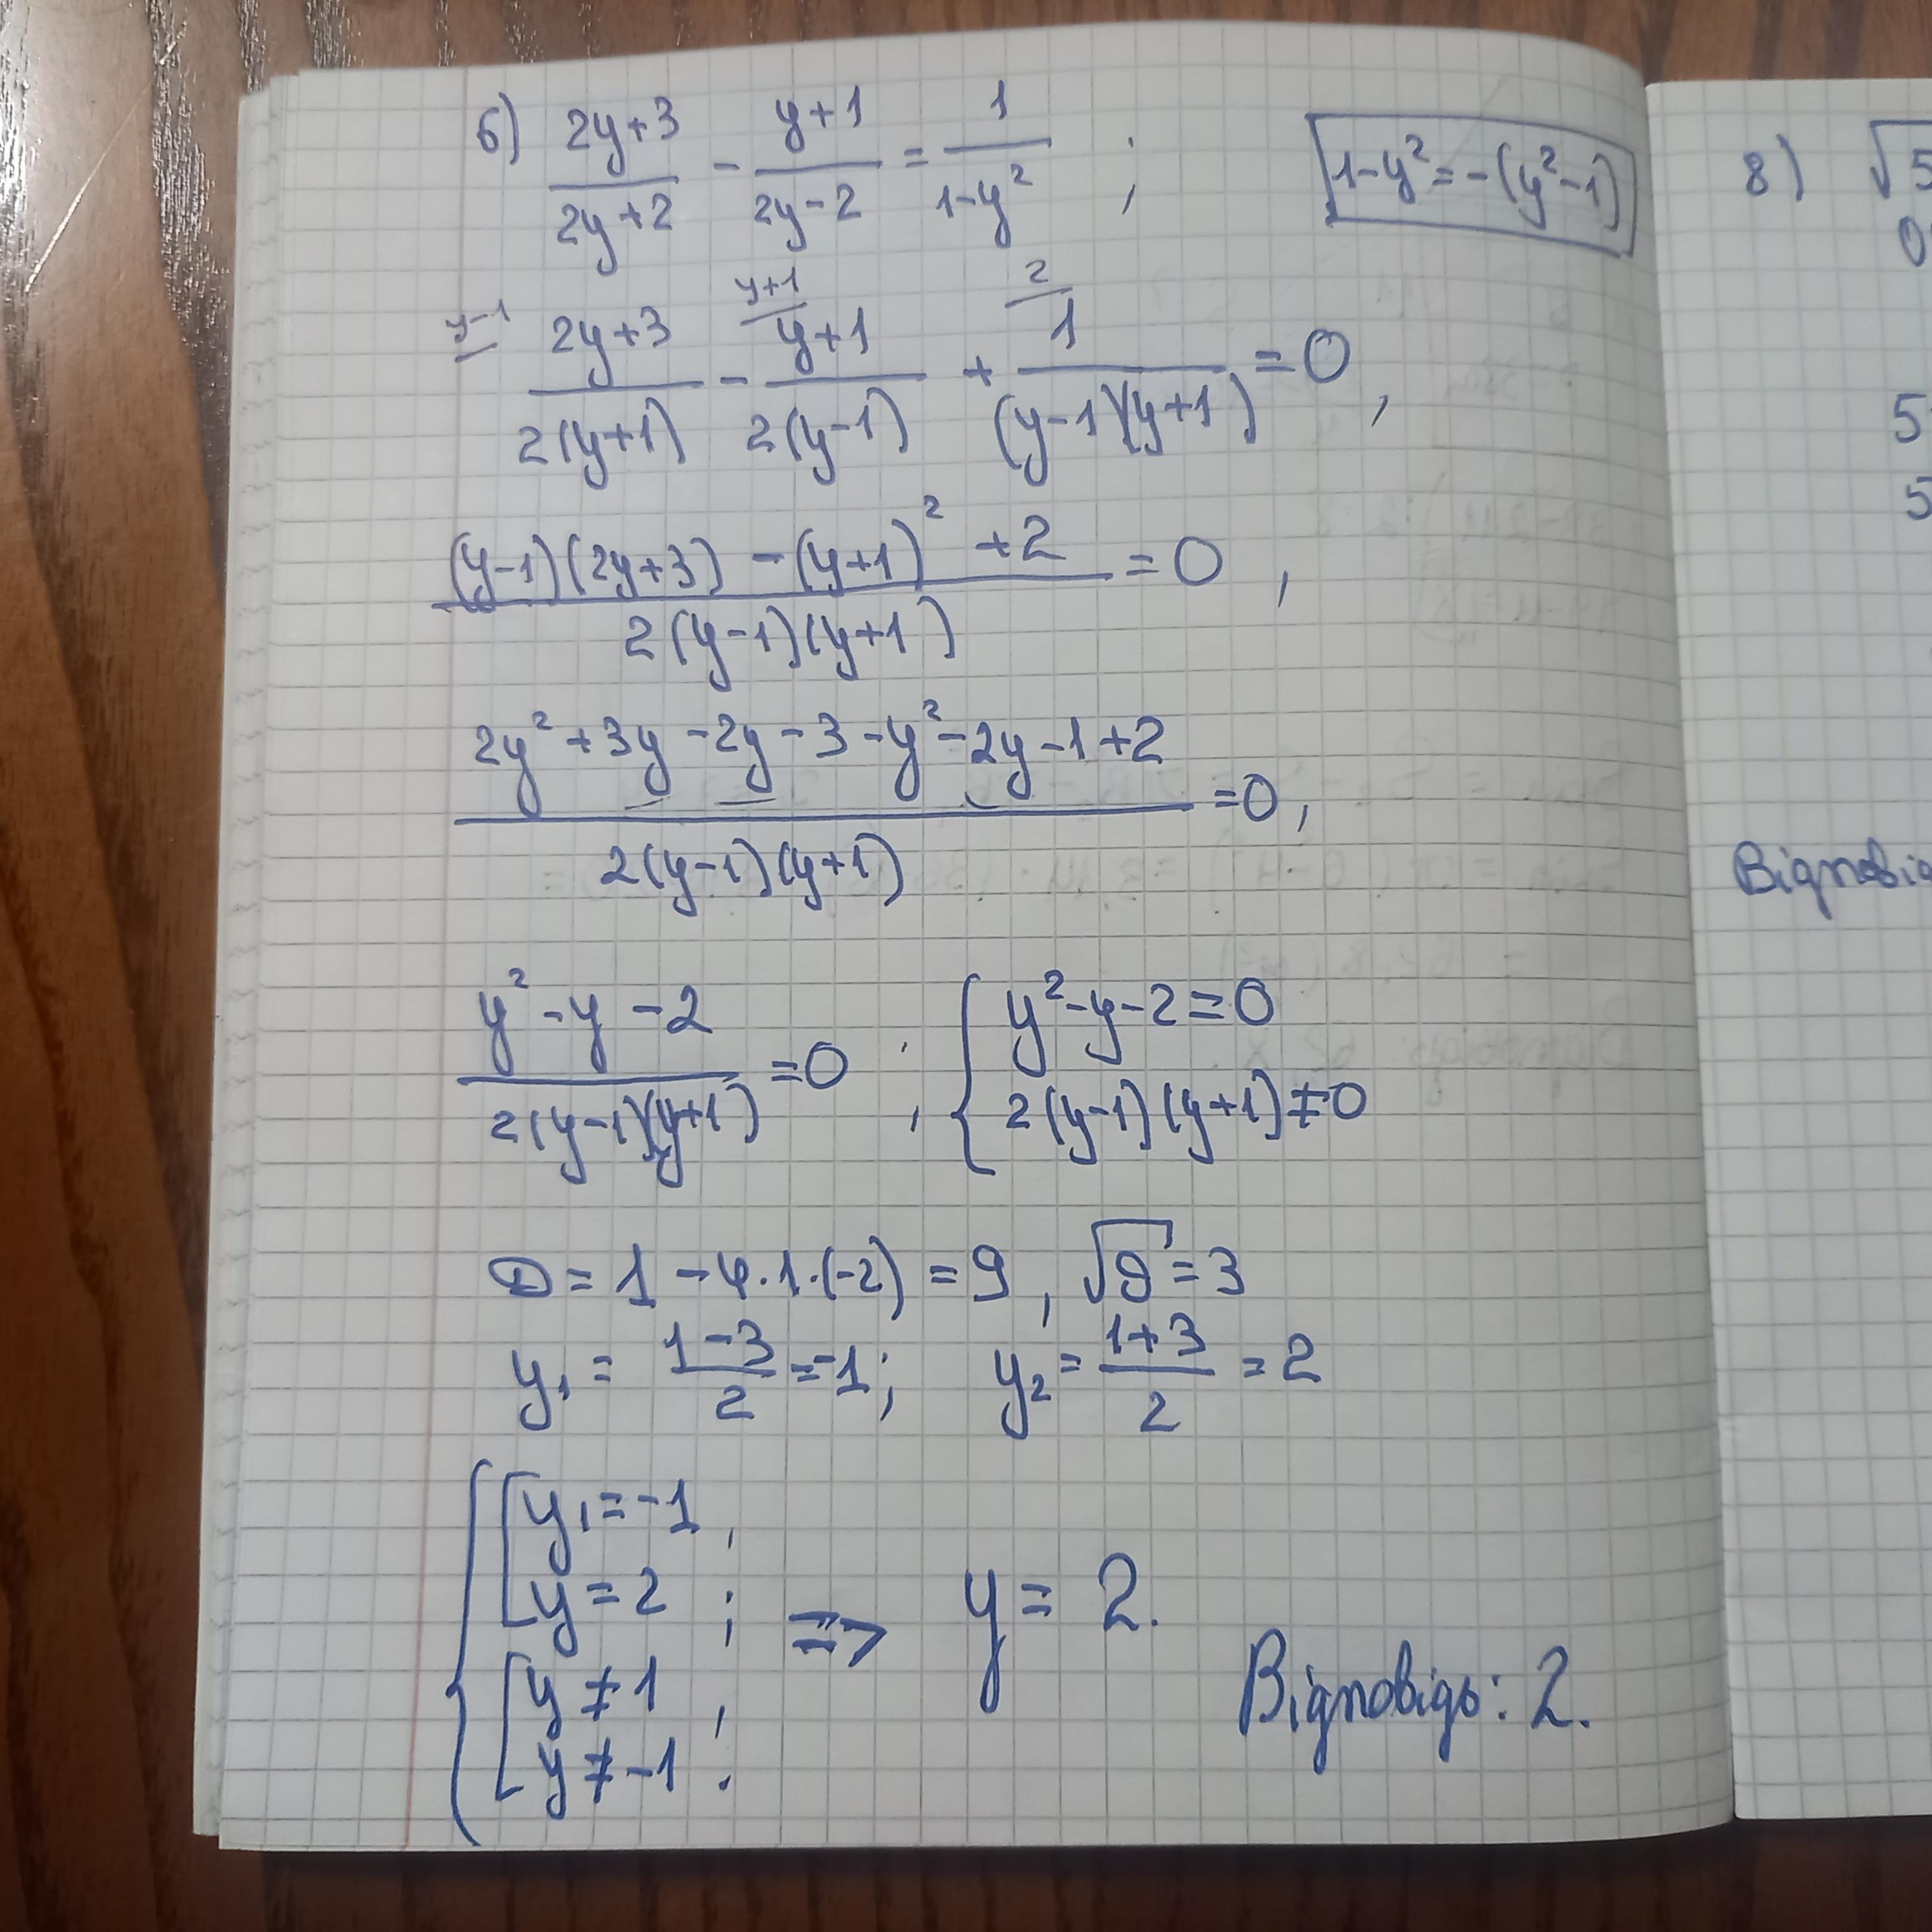 6) (2y+3)/(2y+2) - (y+1)/(2y-2) = 1/(1-y²) ;
1-y² = -(y²-1)
y-1 (2y+3)/(2(y+1)) - y+1 (y+1)/(2(y-1)) + 2 1/((y-1)(y+1)) = 0,
((y-1)(2y+3) - (y+1)² + 2)/(2(y-1)(y+1)) = 0,
(2y² + 3y - 2y - 3 - y² - 2y - 1 + 2)/(2(y-1)(y+1)) = 0,
(y² - y - 2)/(2(y-1)(y+1)) = 0 ; { y² - y - 2 = 0
2(y-1)(y+1) ≠ 0
D = 1 - 4·1·(-2) = 9, √9 = 3
y₁ = (1-3)/2 = -1; y₂ = (1+3)/2 = 2
{ [ y₁ = -1,
y = 2 ; => y = 2.
[ y ≠ 1,
y ≠ -1.
Відповідь: 2.
8) √5
0
5
5